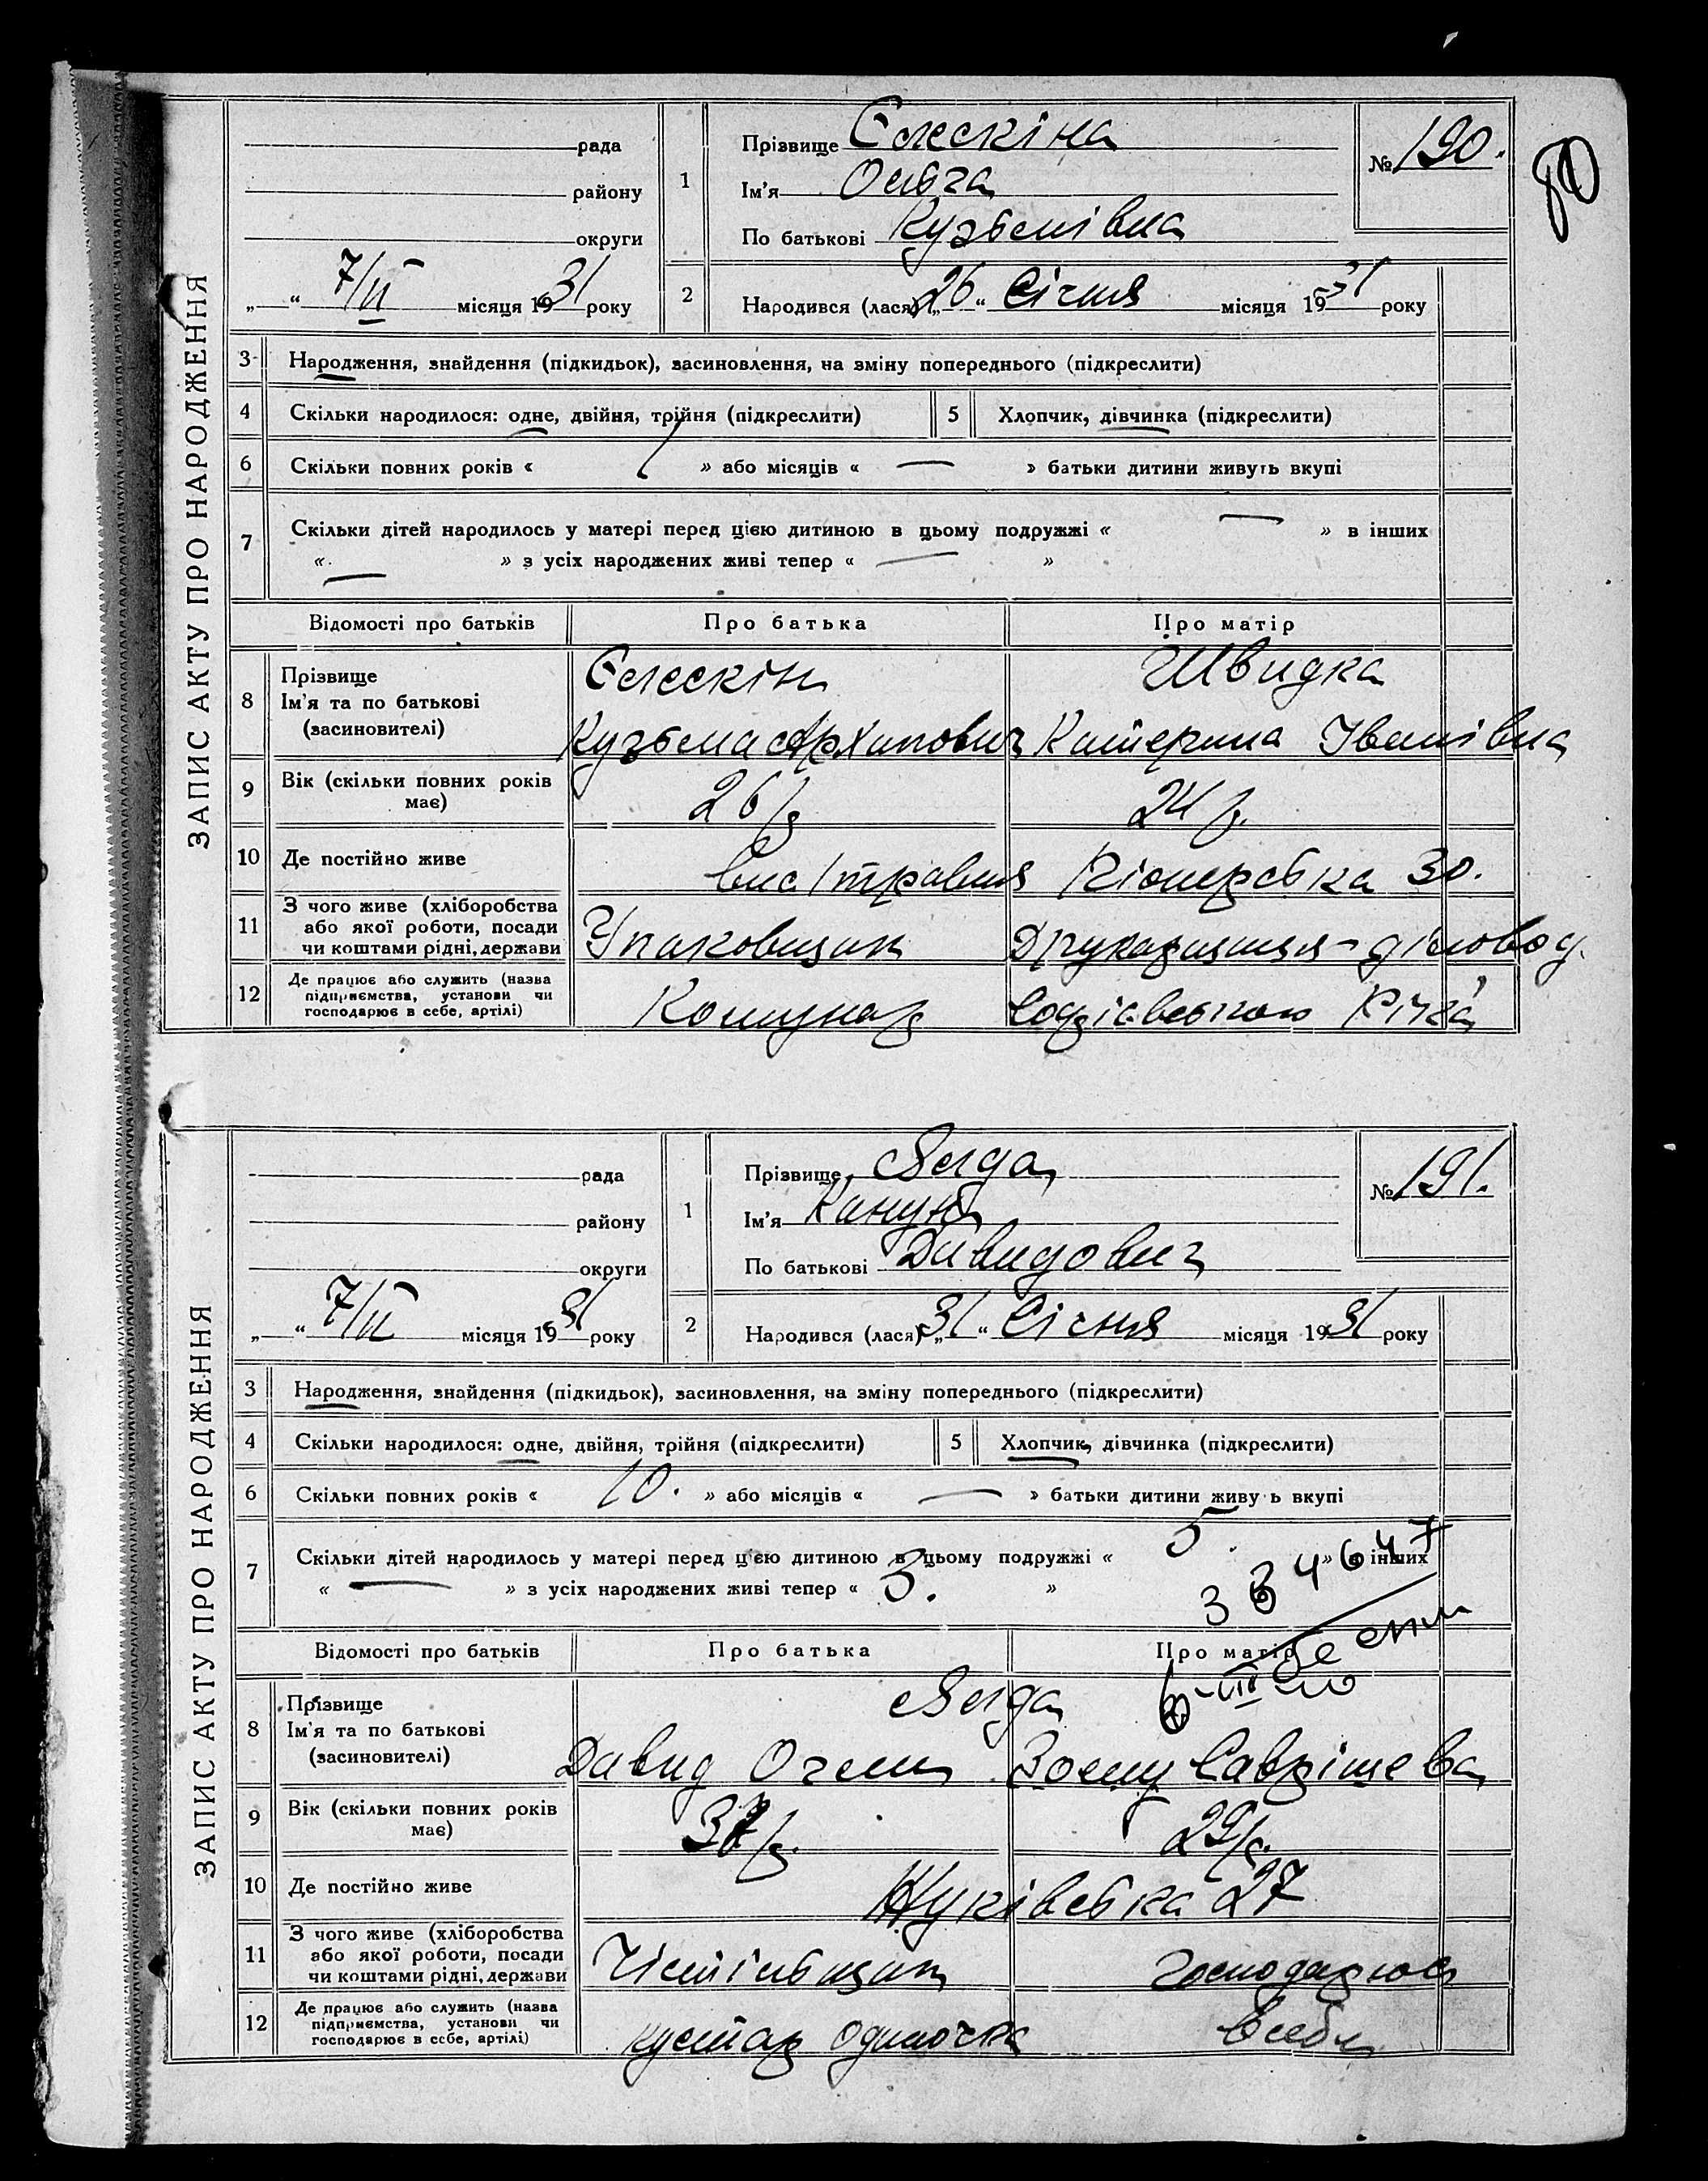 80
ЗАПИС АКТУ ПРО НАРОДЖЕННЯ
рада
району
округи
„ “ 7/II місяця 1931 року
1
Прізвище Єлескіна
Ім'я Ольга
По батькові Кузьмівна
№ 190.
2
Народився (лася) „26“ Січня місяця 1931 року
3 Народження, знайдення (підкидьок), засиновлення, на зміну попереднього (підкреслити)
4 Скільки народилося: одне, двійня, трійня (підкреслити) 5 Хлопчик, дівчинка (підкреслити)
6 Скільки повних років « 1 » або місяців « — » батьки дитини живуть вкупі
7 Скільки дітей народилось у матері перед цією дитиною в цьому подружжі « — » в інших
« — » з усіх народжених живі тепер « — »
Відомості про батьків Про батька Про матір
8 Прізвище Ім'я та по батькові (засновителі)
Єлескін Швидка
Кузьма Архипович Катерина Іванівна
9 Вік (скільки повних років має) 26 р 24 р.
10 Де постійно живе вис 1 травня Піонерська 30.
11 З чого живе (хліборобства або якої роботи, посади чи коштами рідні, держави Упаковщик Друкарщиця-діловод.
12 Де працює або служить (назва підприємства, установи чи господарює в себе, артілі) Комунар
ЗАПИС АКТУ ПРО НАРОДЖЕННЯ
рада
району
округи
„ “ 7/II місяця 1931 року
1
Прізвище
Ім'я
По батькові Давидович
№ 191.
2
Народився (лася) „31“ Січня місяця 1931 року
3 Народження, знайдення (підкидьок), засиновлення, на зміну попереднього (підкреслити)
4 Скільки народилося: одне, двійня, трійня (підкреслити) 5 Хлопчик, дівчинка (підкреслити)
6 Скільки повних років « 10. » або місяців « — » батьки дитини живуть вкупі
7 Скільки дітей народилось у матері перед цією дитиною в цьому подружжі « 5. » в інших
« — » з усіх народжених живі тепер « 3. »
Відомості про батьків Про батька Про матір
8 Прізвище Ім'я та по батькові (засиновителі)
Давид
9 Вік (скільки повних років має) 37 р. 29 р.
10 Де постійно живе Жуківська 27
11 З чого живе (хліборобства або якої роботи, посади чи коштами рідні, держави Чистільщик господарює
12 Де працює або служить (назва підприємства, установи чи господарює в себе, артілі) кустар одиночка в себе